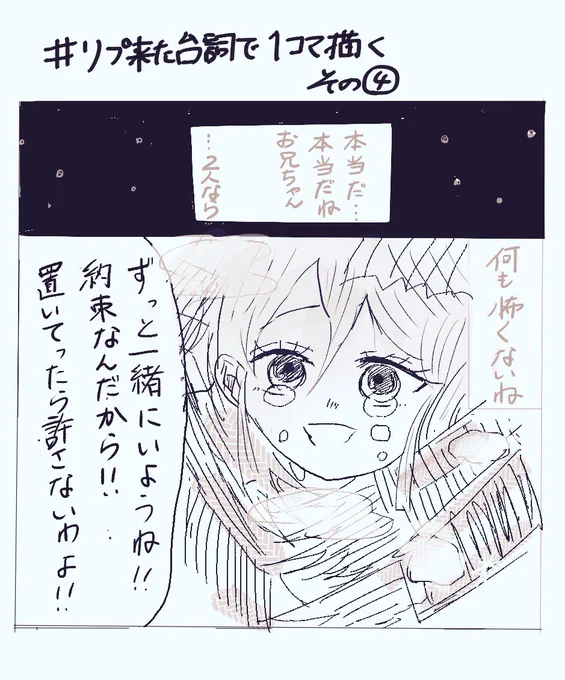 #リプ来た台詞で1コマ描く
その④
本当だ…
本当だね
お兄ちゃん
…2人なら
何も怖くないね
ずっと一緒にいようね!!
約束なんだから!!
置いてったら許さないわよ!!